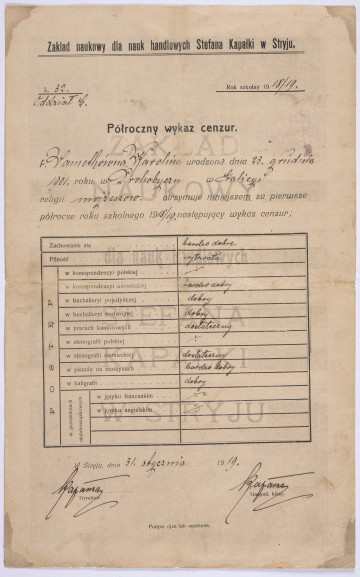 Zakład naukowy dla nauk handlowych Stefana Kapałki w Stryju.
L. 32.
Oddział C.
Rok szkolny 1918/19.
Półroczny wykaz cenzur.
Karolina urodzona dnia 23. grudnia
1901. roku w Drohobyczu w Galicyi
religii mojżeszowej otrzymuje niniejszem za pierwsze
półrocze roku szkolnego 1918/19 następujący wykaz cenzur:
ZAKŁAD
NAUKOWY
dla nauk handlowych
STEFANA
KAPAŁKI
W STRYJU
Zachowanie się bardzo dobre
Pilność wytrwała
POSTĘPY
w korespondencyi polskiej
w korespondencyi niemieckiej bardzo dobry
w buchalteryi pojedyńczej dobry
w buchalteryi podwójnej dobry
w pracach kantorowych dostateczny
w stenografii polskiej
w stenografii niemieckiej dostateczny
w pisaniu na maszynach bardzo dobry
w kaligrafii dobry
w przedmiotach nadobowiązkowych
w języku francuskim
w języku angielskim
W Stryju, dnia 31. stycznia 1919.
Kapałka
Dyrektor.
Kapałka
Gospod. klasy.
Podpis ojca lub opiekuna.